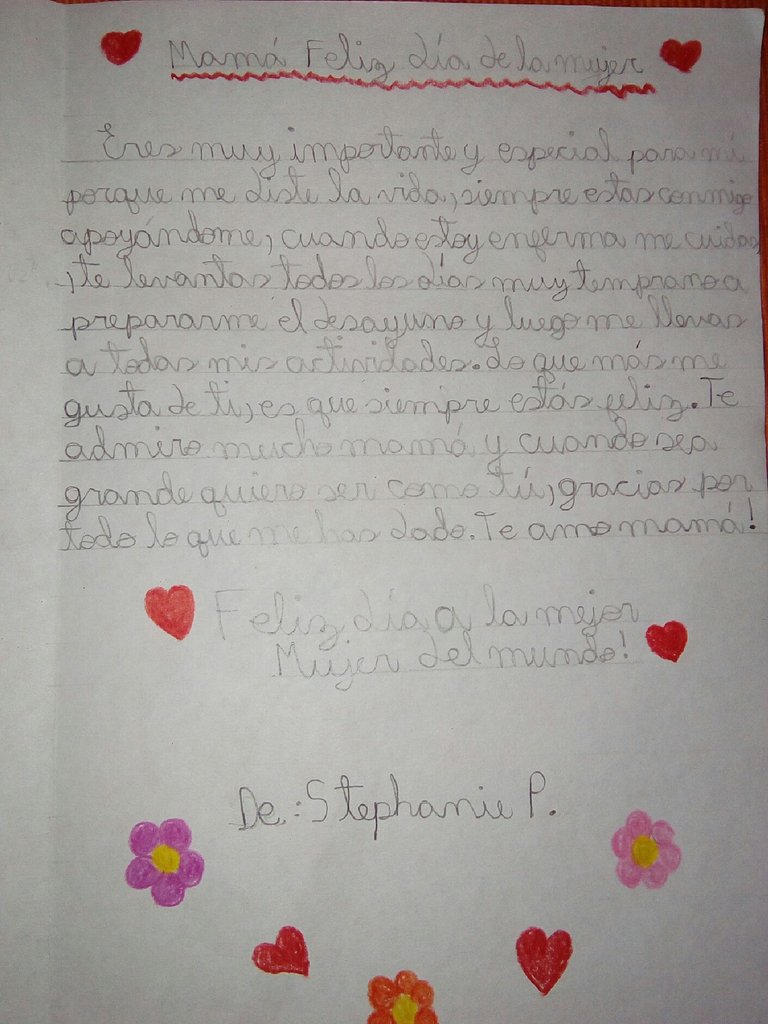 Mamá Feliz día de la mujer
Eres muy importante y especial para mí
porque me diste la vida, siempre estas conmigo
apoyándome, cuando estoy enferma me cuidas
, te levantas todos los días muy temprano a
prepararme el desayuno y luego me llevas
a todas mis actividades. Lo que más me
gusta de ti, es que siempre estás feliz. Te
admiro mucho mamá y cuando sea
grande quiero ser como tú, gracias por
todo lo que me has dado. Te amo mamá!
Feliz día a la mejor
Mujer del mundo!
De: Stephanie P.